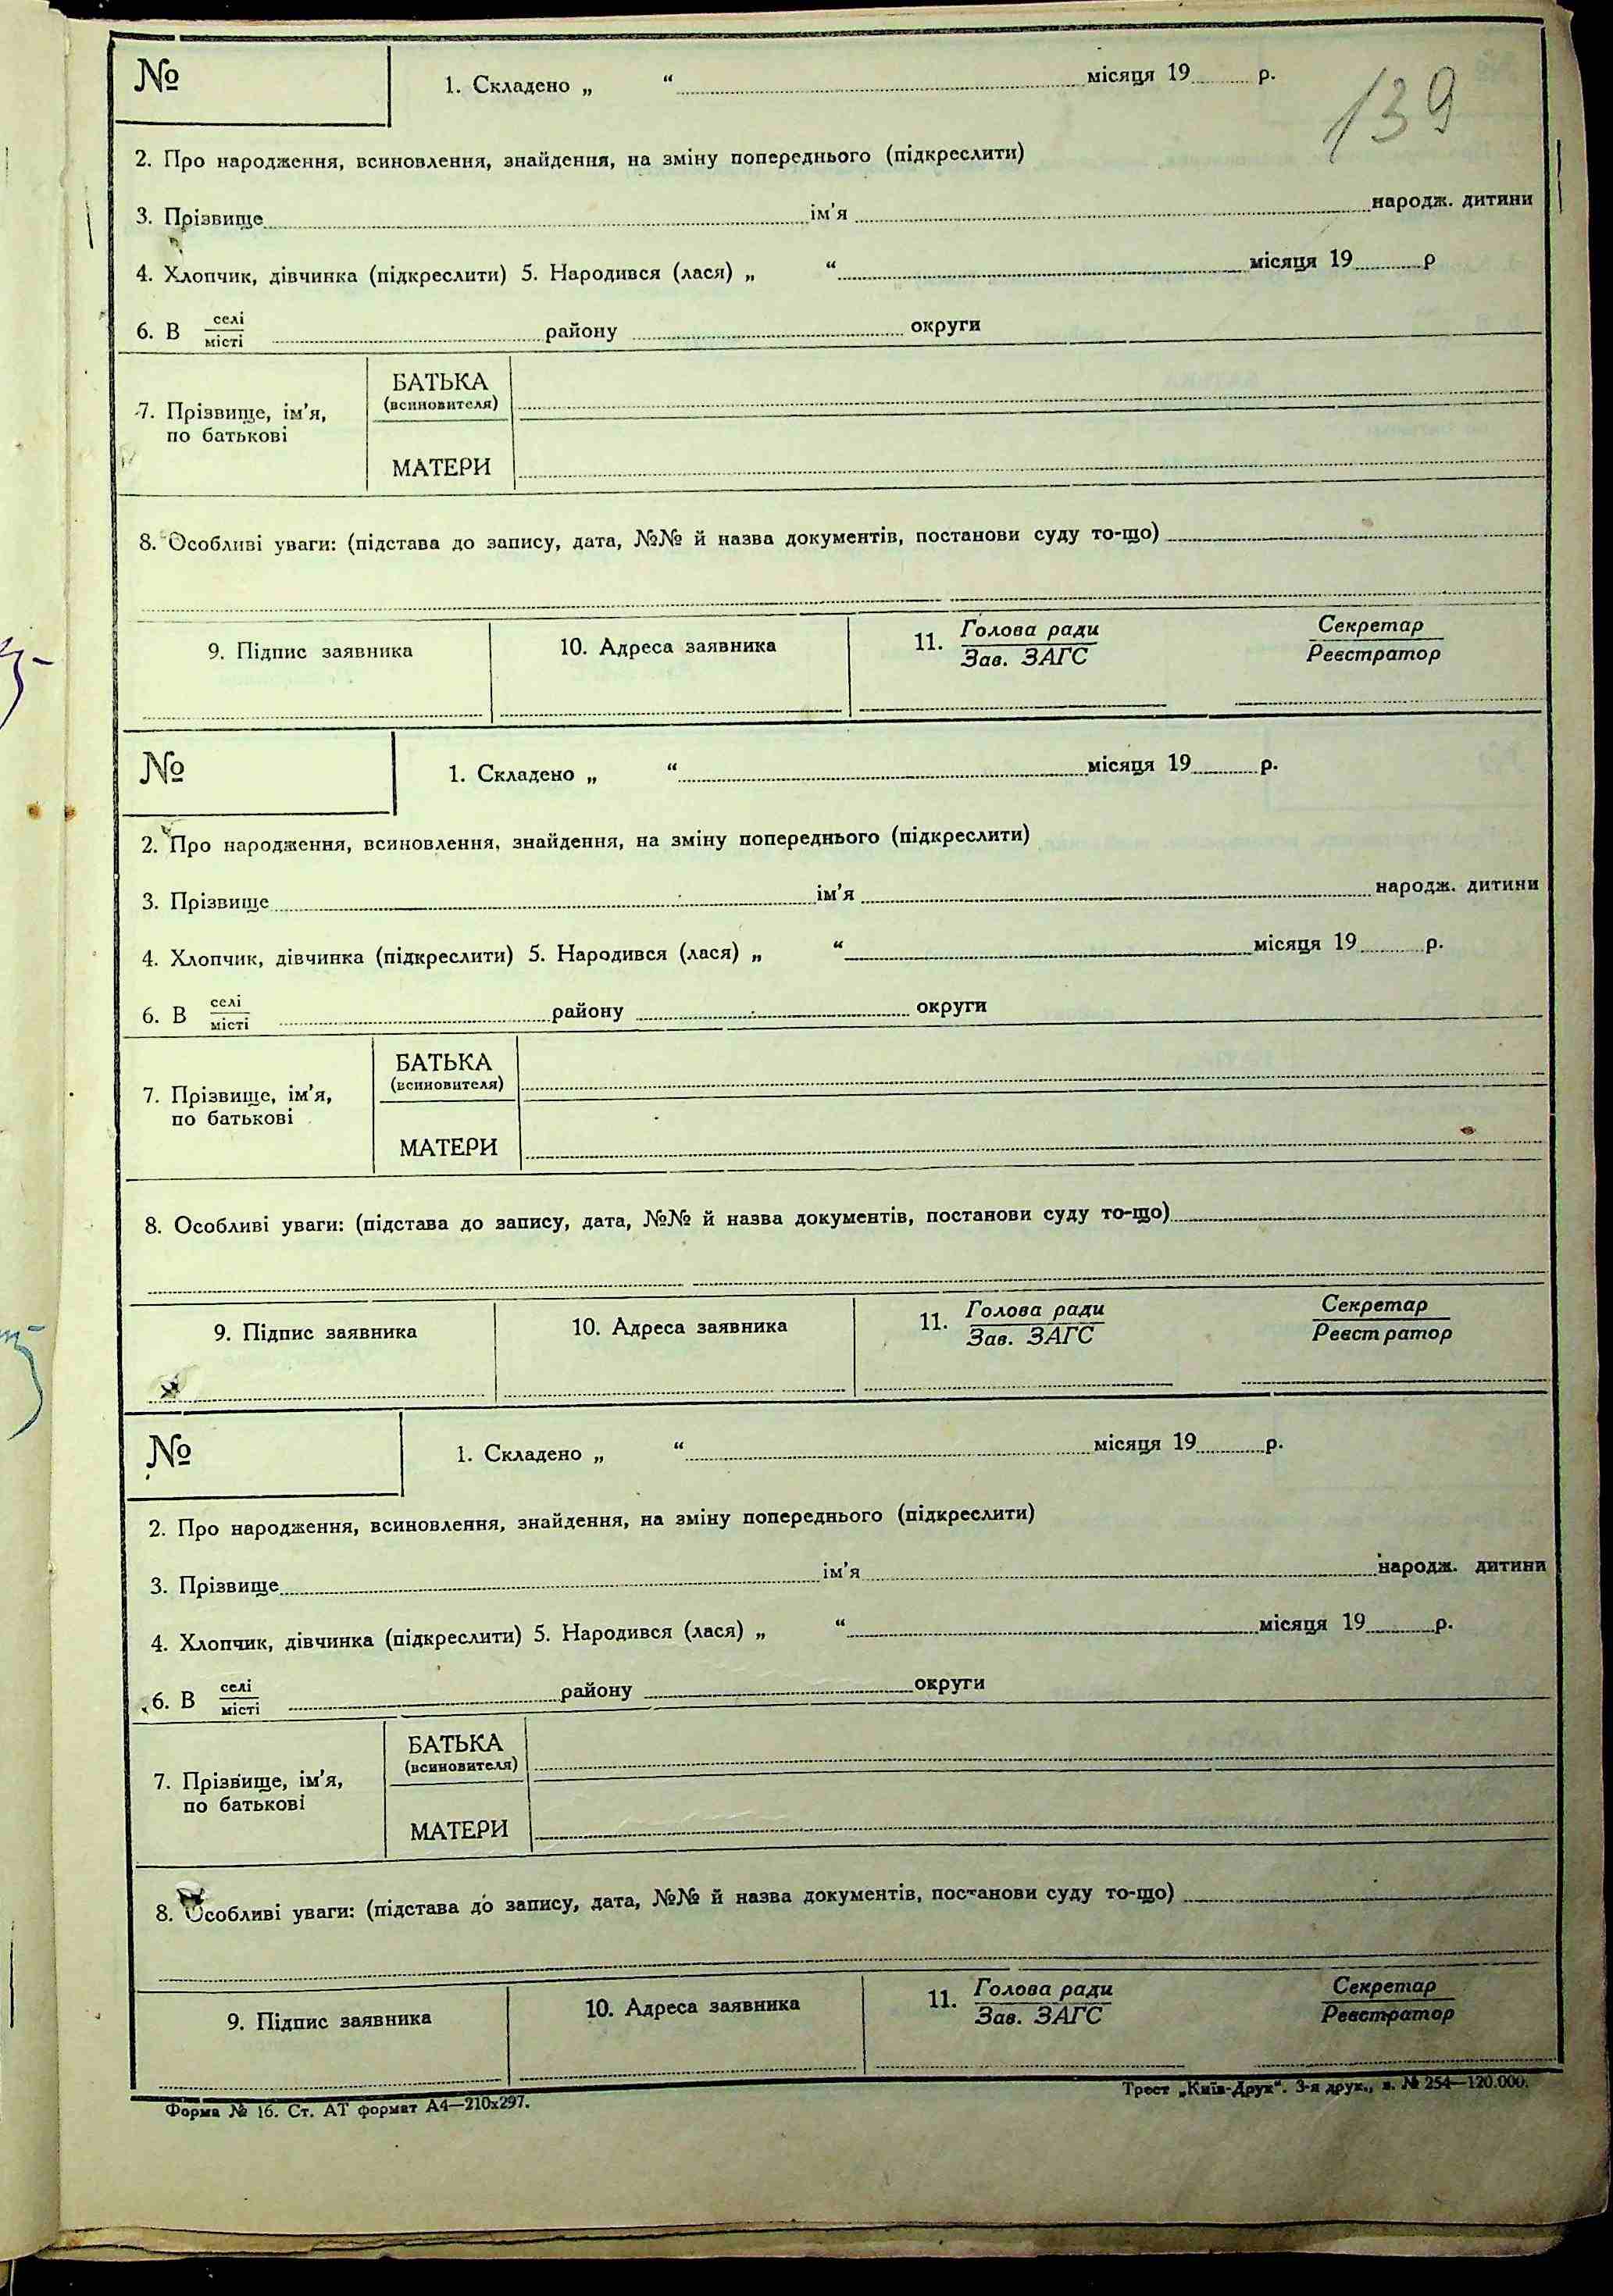 139
№
1. Складено „ “ місяця 19 р.
2. Про народження, всиновлення, знайдення, на зміну попереднього (підкреслити)
3. Прізвище ім'я народж. дитини
4. Хлопчик, дівчинка (підкреслити) 5. Народився (лася) „ “ місяця 19 р
6. В селі місті району округи
7. Прізвище, ім'я,
по батькові
БАТЬКА
(всиновителя)
МАТЕРИ
8. Особливі уваги: (підстава до запису, дата, №№ й назва документів, постанови суду то-що)
9. Підпис заявника
10. Адреса заявника
11. Голова ради
Зав. ЗАГС
Секретар
Реєстратор
№
1. Складено „ “ місяця 19 р.
2. Про народження, всиновлення, знайдення, на зміну попереднього (підкреслити)
3. Прізвище ім'я народж. дитини
4. Хлопчик, дівчинка (підкреслити) 5. Народився (лася) „ “ місяця 19 р.
6. В селі місті району округи
7. Прізвище, ім'я,
по батькові
БАТЬКА
(всиновителя)
МАТЕРИ
8. Особливі уваги: (підстава до запису, дата, №№ й назва документів, постанови суду то-що)
9. Підпис заявника
10. Адреса заявника
11. Голова ради
Зав. ЗАГС
Секретар
Реєстратор
№
1. Складено „ “ місяця 19 р.
2. Про народження, всиновлення, знайдення, на зміну попереднього (підкреслити)
3. Прізвище ім'я народж. дитини
4. Хлопчик, дівчинка (підкреслити) 5. Народився (лася) „ “ місяця 19 р.
6. В селі місті району округи
7. Прізвище, ім'я,
по батькові
БАТЬКА
(всиновителя)
МАТЕРИ
8. Особливі уваги: (підстава до запису, дата, №№ й назва документів, постанови суду то-що)
9. Підпис заявника
10. Адреса заявника
11. Голова ради
Зав. ЗАГС
Секретар
Реєстратор
Форма № 16. Ст. АТ формат А4—210х297.
Трест „Київ-Друк“. 3-я друк., з. № 254—120.000.